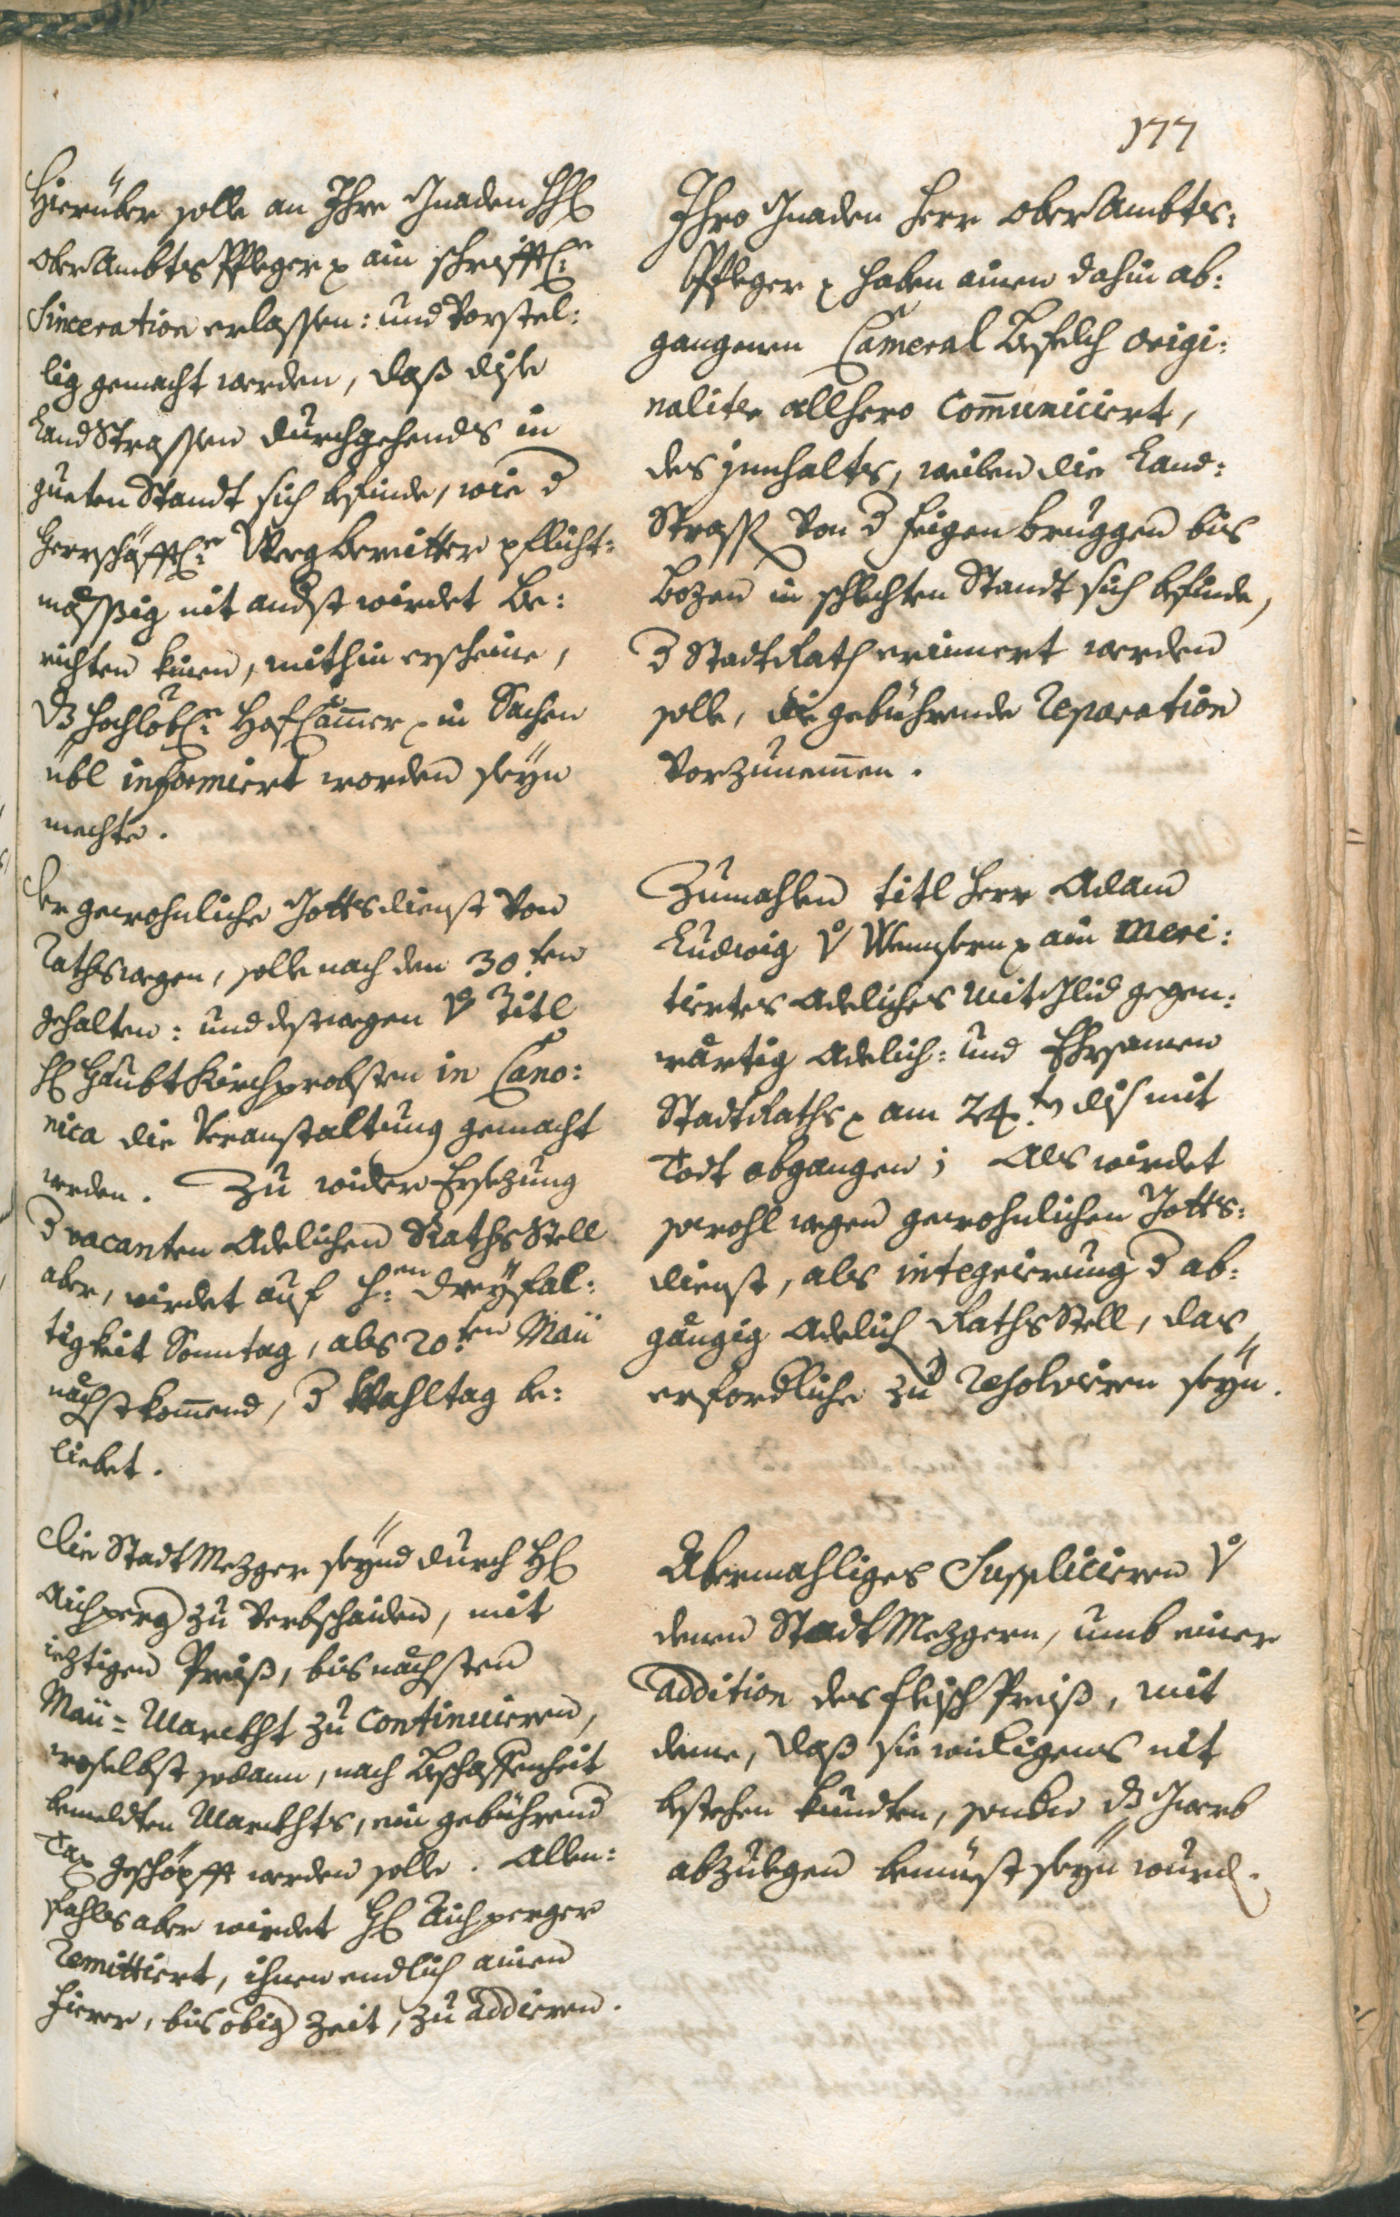 177
Hierüber solle an Ihre Gnaden HH
OberAmbts Pfleger p ain schrifftl:e
Sinceration erlassen: und Vorstel:
lig gemacht werden, daß dise
Landstrassen durchgehends in
gueten Standt sich befinde, wie d
Herrschafftl:e Weeg bereitter pflicht:
mässig nit anderst wirdet be:
richten künen, mithin erscheine,
dz hochlobl:e HofCammer p in Sachen
übl informiert worden seyn
mechte.
Der gewohnliche Gottsdienst von
Rathswegen, solle nach den 30.ten
gehalten: und destwegen dem Titl
H Haubt Kirchprobsten in Cano:
nica die Veranstaltung gemacht
werden. Zu wider Ersezung
d vacanten Adelichen RathsStell
aber, wirdet auf H:en Dreyfal:
tigkeit Sonntag, als 20.ten Maii
nächstkommend, d Wahltag be:
liebet.
Die Stadt Mezger seynd durch H
Aichperg zu Verbschaiden, mit
ieztigen Preiß, bis nächsten
Maii=Marckht zu continuieren,
woselbst sodann, nach Beschaffenheit
bemeldten Marckhts, ein gebührend
Tax geschöpfft werden solle. Allen:
fahls aber wirdet H Aichperger
Remittiert, ihnen endlich ainen
fierer, bis obig Zeit, zu addieren.
Ihro Gnaden Herr OberAmbts:
Pfleger p haben ainen dahin ab:
gangenen Cameral Befelch origi:
naliter allhero communiciert,
des Innhalts, weilen die Land:
Strass von d feigen bruggen bis
Bozen in schlechten Standt sich befinde,
d StadtRath erinnert werden
solle, die gebührende Reparation
vorzunemmen.
Zumahlen titl Herr Adam
Ludwig v Wensern p ain Meri:
tiertes Adeliches Mitglid gegen:
wärtig Adelich: und Ehrsamen
StadtRaths p am 24.ten dis mit
Todt abgangen; Als wirdet
sowohl wegen gewohnlichen Gotts:
dienst, als integrierung d ab:
gängig Adelich RathsStell, das
erforderliche zu Resolvieren seyn.
Abermahliges Supplicieren v
denen Stadt Mezgern, umb einer
addition des fleisch Preiß, mit
deme, daß sie widrigens nit
bestehen kundten, sonder dz Gwerb
abzulegen bemüest seyn wurd.